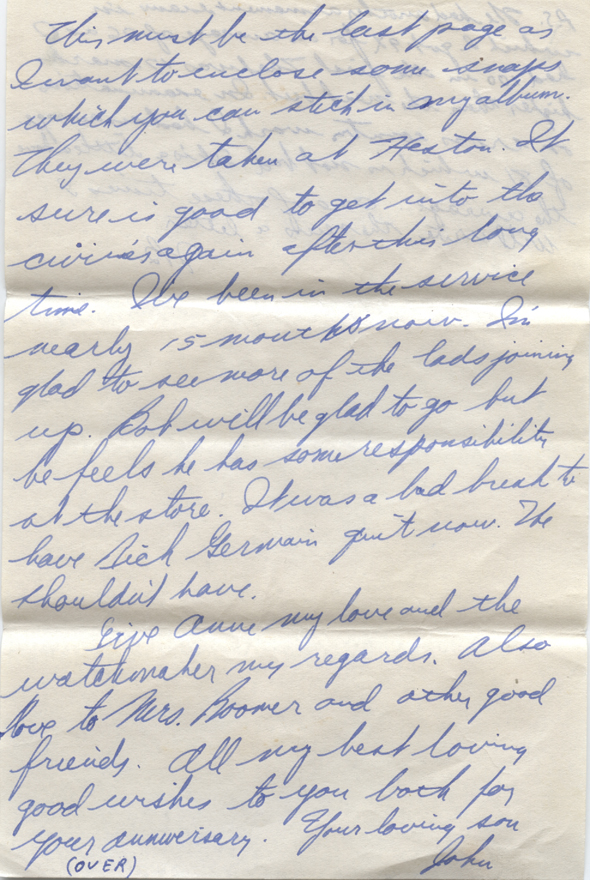 This must be the last page as
I want to enclose some snaps
which you can stick in my album.
They were taken at Heston. It
sure is good to get into the
civvies again after this long
time. I've been in the service
nearly 15 months now. I'm
glad to see more of the lads joining
up. Bob will be glad to go but
he feels he has some responsibility
at the store. It was a bad break to
have Dick Germain quit now. He
shouldn't have.
Give Anne my love and the
watchmaker my regards. Also
love to Mrs. Boomer and other good
friends. All my best loving
good wishes to you both for
your anniversary. Your loving son
(OVER) John